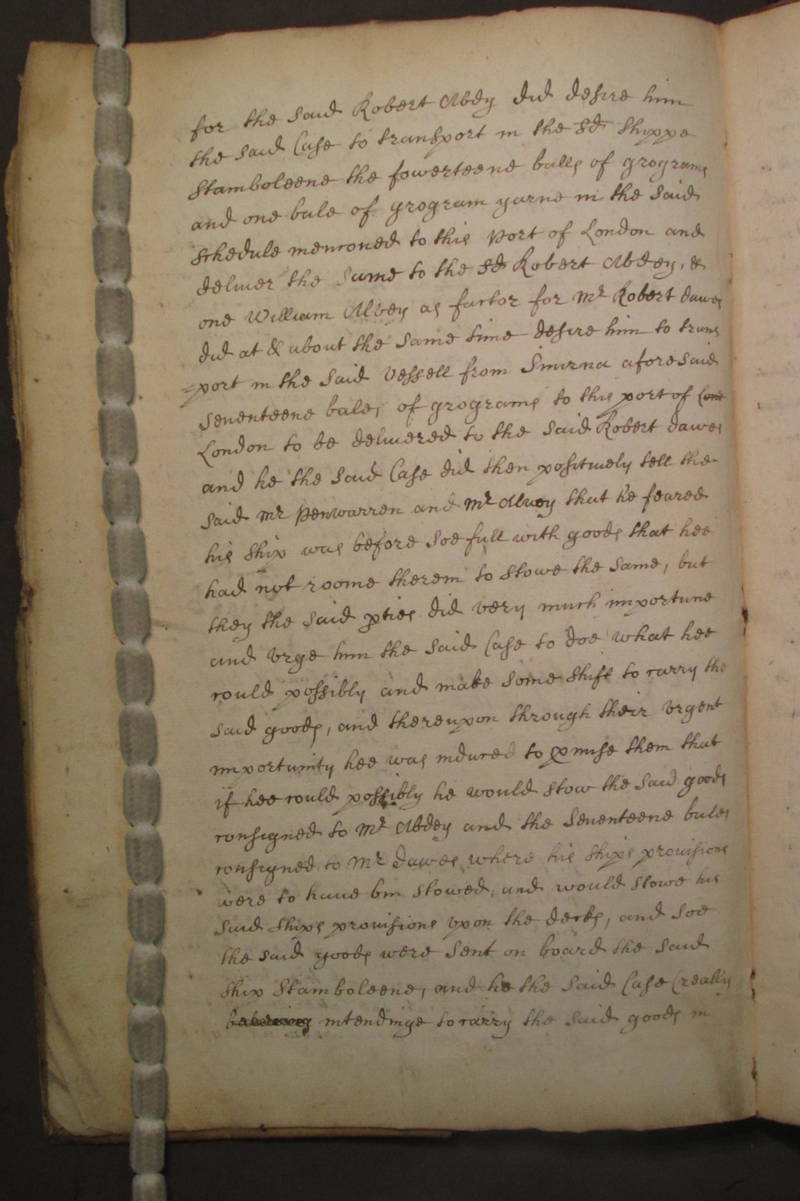 for the said Robert Abdy did desire him
the said Case to transport in the sd shippe
Stamboleene the fowerteene balls of grograms
and one bale of grogram yarne in the said
schedule menconed to this Port of London and
deliver the same to the sd Robert Abdey, &
one William Alvey as factor for Mr Robert dawes
did at & about the same time desire him to trans
=port in the said vessell from Smirna aforesaid
seventeene bales of grograms to this port of Lond
London to be delivered to the said Robert dawes
and he the said Case did then positively tell the
said Mr Penwarren and Mr Alvey that he feared
his ship was before soe full with goods that hee
had not roome therein to stowe the same, but
they the said pties did very much importune
and vrge him the said Case to doe what hee
could possibly and make some shift to carry the
said goods, and thereupon through their vrgent
importunity hee was induced to pmise them that
if hee could possibly he would stow the said goods
consigned to Mr Abdey and the seventeene bales
consigned to Mr dawes where his ships provisions
were to have bin stowed, and would stowe his
said ships provisions vpon the decks, and soe
the said goods were sent on board the said
ship Stamboleene, and he the said Case (really
intendinge to carry the said goods in